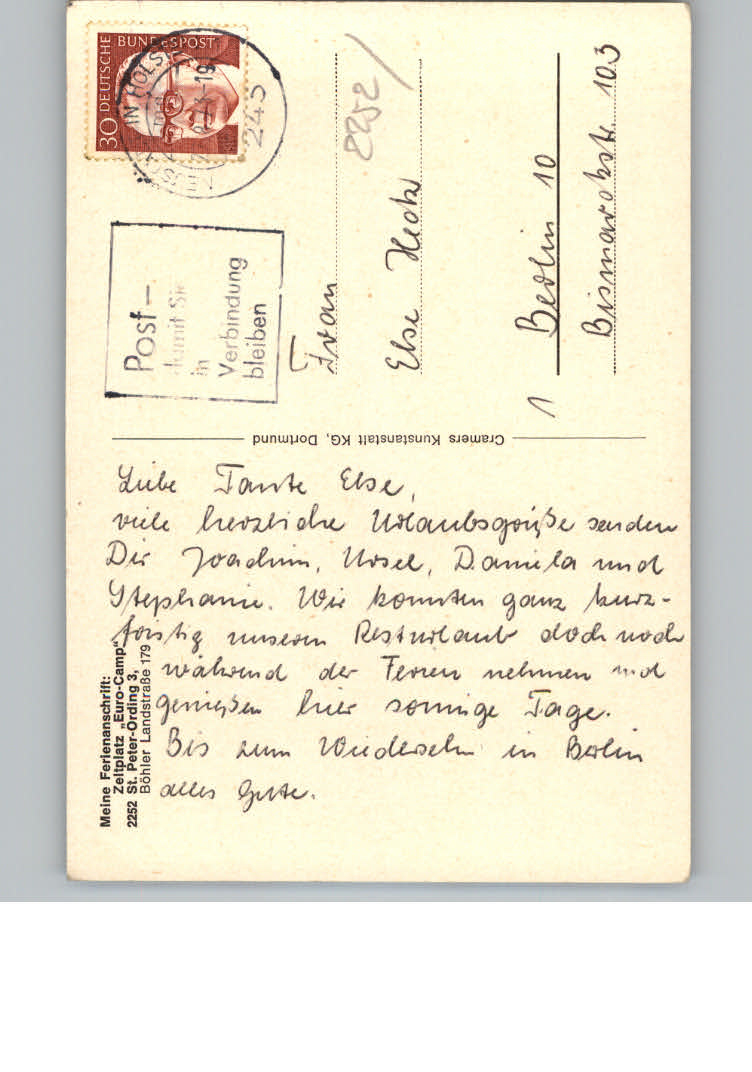 DEUTSCHE BUNDESPOST
30
IN HOLST
245
Post –
damit Sie
in
Verbindung
bleiben
2252
Frau
Else
1 Berlin 10
Bismarckstr 103
Cramers Kunstanstalt KG, Dortmund
Liebe Tante Else,
viele herzliche Urlaubsgrüße senden
Dir Joachim, Ursel, Daniela und
Stephanie. Wir konnten ganz kurz-
fristig unseren Resturlaub doch noch
während der Ferien nehmen und
genießen hier sonnige Tage.
Bis zum Wiedersehn in Berlin
alles Gute.
Meine Ferienanschrift:
Zeltplatz „Euro-Camp“
2252 St. Peter-Ording 3,
Böhler Landstraße 179